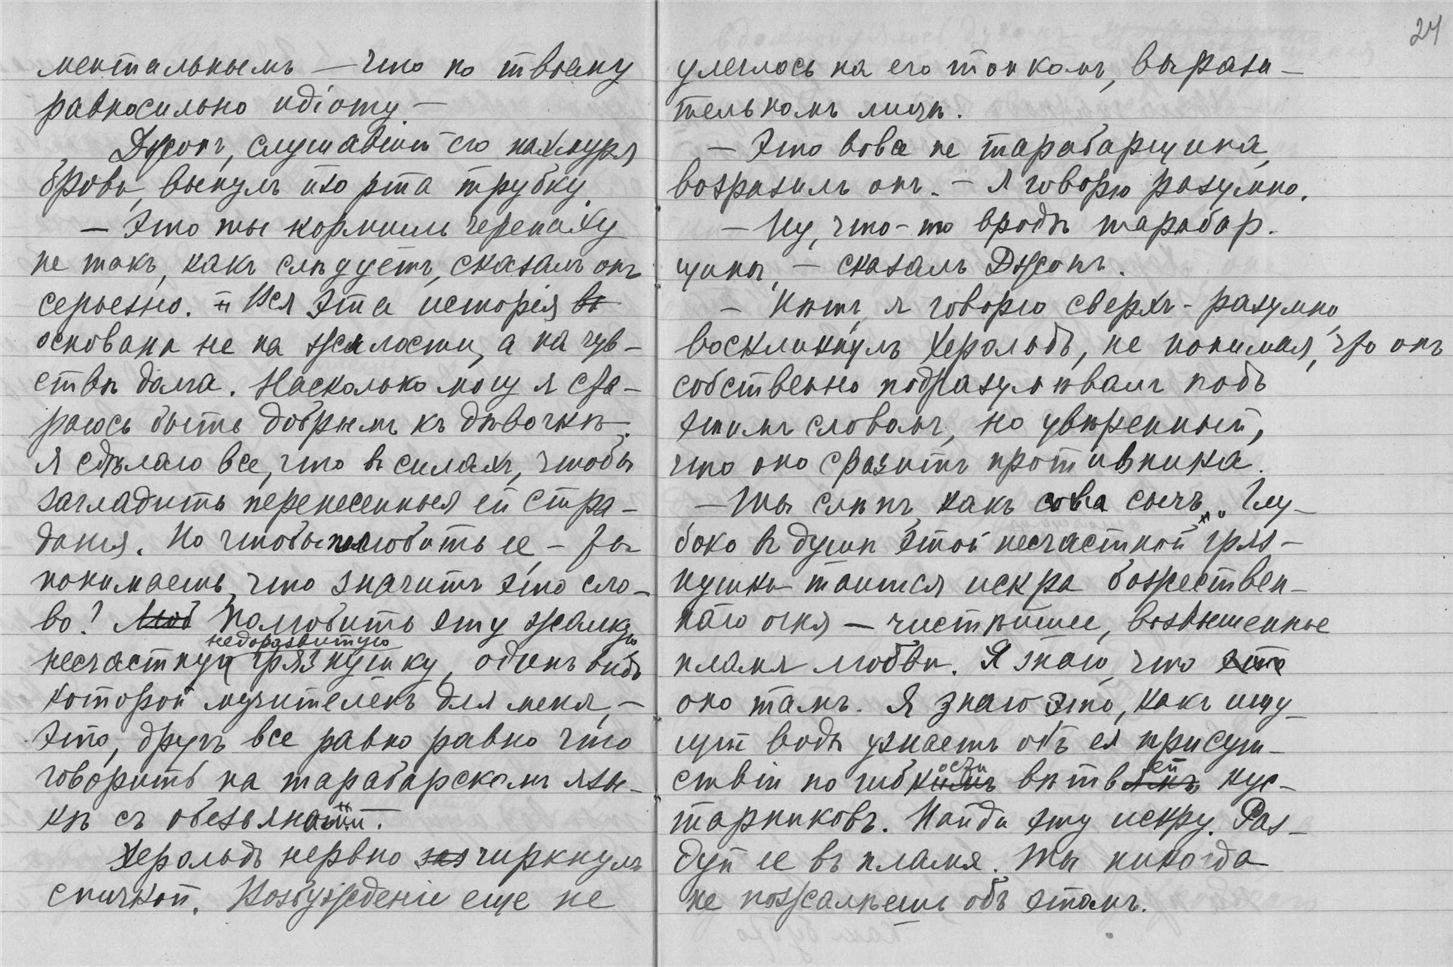 ментальнымъ — что по твоему
равносильно идіоту —
Джонъ, слушавшій его нахмуря
бровь, вынулъ изо рта трубку
— Это ты кормишь черепаху
не такъ, какъ слѣдуетъ, сказалъ онъ
серьезно. — Вся эта исторія
основана не на жалости, а на чув-
ствѣ долга. Насколько могу я ста-
раюсь быть добрымъ къ дѣвочкѣ.
Я сдѣлаю все, что въ силахъ, чтобы
загладить перенесенныя ей стра-
данія. Но чтобы полюбить ее, — ты
понимаешь, что значитъ это сло-
во? Полюбить эту жалкую
недоразвитую
несчастную грязнушку, одинъ видъ
которой мучителенъ для меня, —
это, другъ все равно равно что
говорить на тарабарскомъ язы-
кѣ съ обезьяной.
Херольдъ нервно чиркнулъ
спичкой. Возбужденіе еще не
24
улеглось на его тонкомъ, вырази-
тельномъ лицѣ.
— Это вовсе не тарабарщина,
возразилъ онъ. — Я говорю разумно.
— Ну, что-то вродѣ тарабар-
щины, — сказалъ Джонъ.
— Нѣтъ, я говорю сверхъ-разумно,
воскликнулъ Херольдъ, не понимая, что онъ
собственно подразумѣвалъ подъ
этимъ словомъ, но увѣренный,
что оно сразитъ противника.
— Ты слѣпъ какъ сова сычъ. Глу-
боко въ душѣ этой несчастной гряз-
нушки таится искра божествен-
наго огня — чистѣйшее, возвышенное
пламя любви. Я знаю, что
оно тамъ. Я знаю это, какъ ищу-
щій воды узнаетъ объ ея присут-
ствіи по гибкости вѣтвей кус-
тарниковъ. Найди эту искру. Раз-
дуй ее въ пламя. Ты никогда
не пожалѣешь объ этомъ.